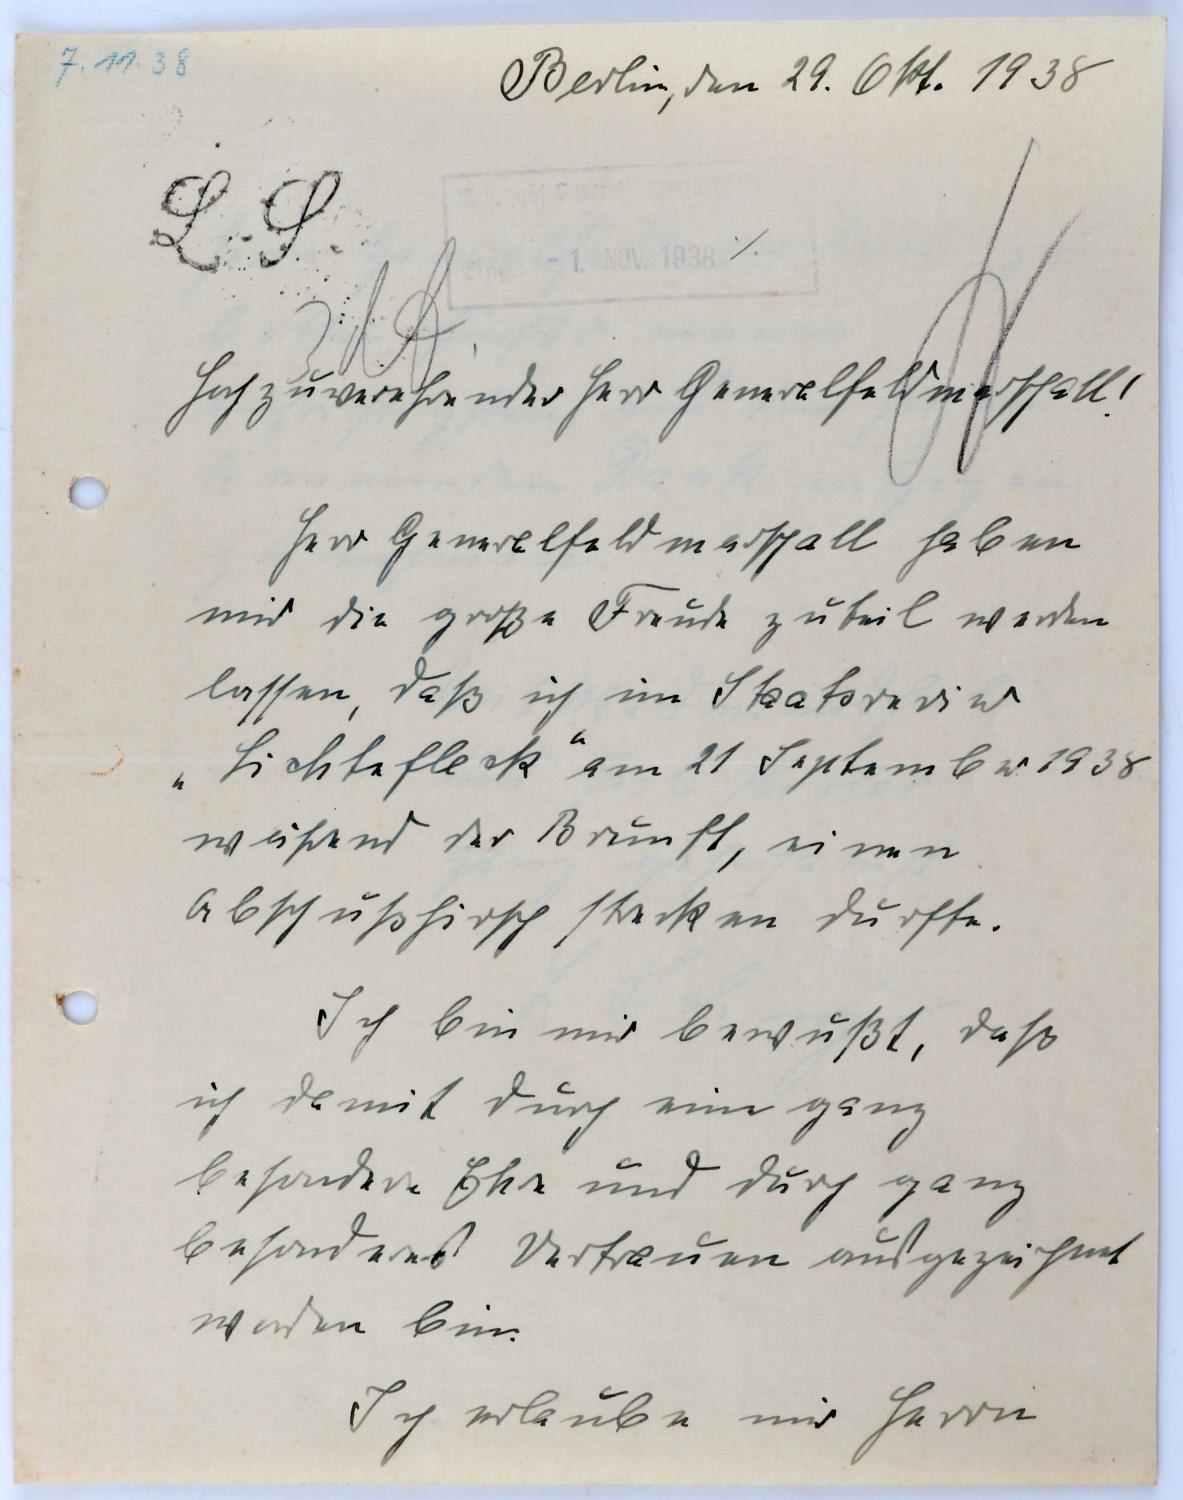 7.11.38
Berlin, den 29. Okt. 1938
L. S.
- 1. NOV. 1938
Hochzuverehrender Herr Generalfeldmarschall!
Herr Generalfeldmarschall haben
mir die große Freude zuteil werden
lassen, daß ich im Staatsrevier
„Lichtefleck“ am 21 September 1938
während der Brunft, einen
Abschußhirsch strecken durfte.
Ich bin mir bewußt, daß
ich damit durch eine ganz
besondere Ehre und durch ganz
besonderes Vertrauen ausgezeichnet
worden bin.
Ich erlaube mir Herrn